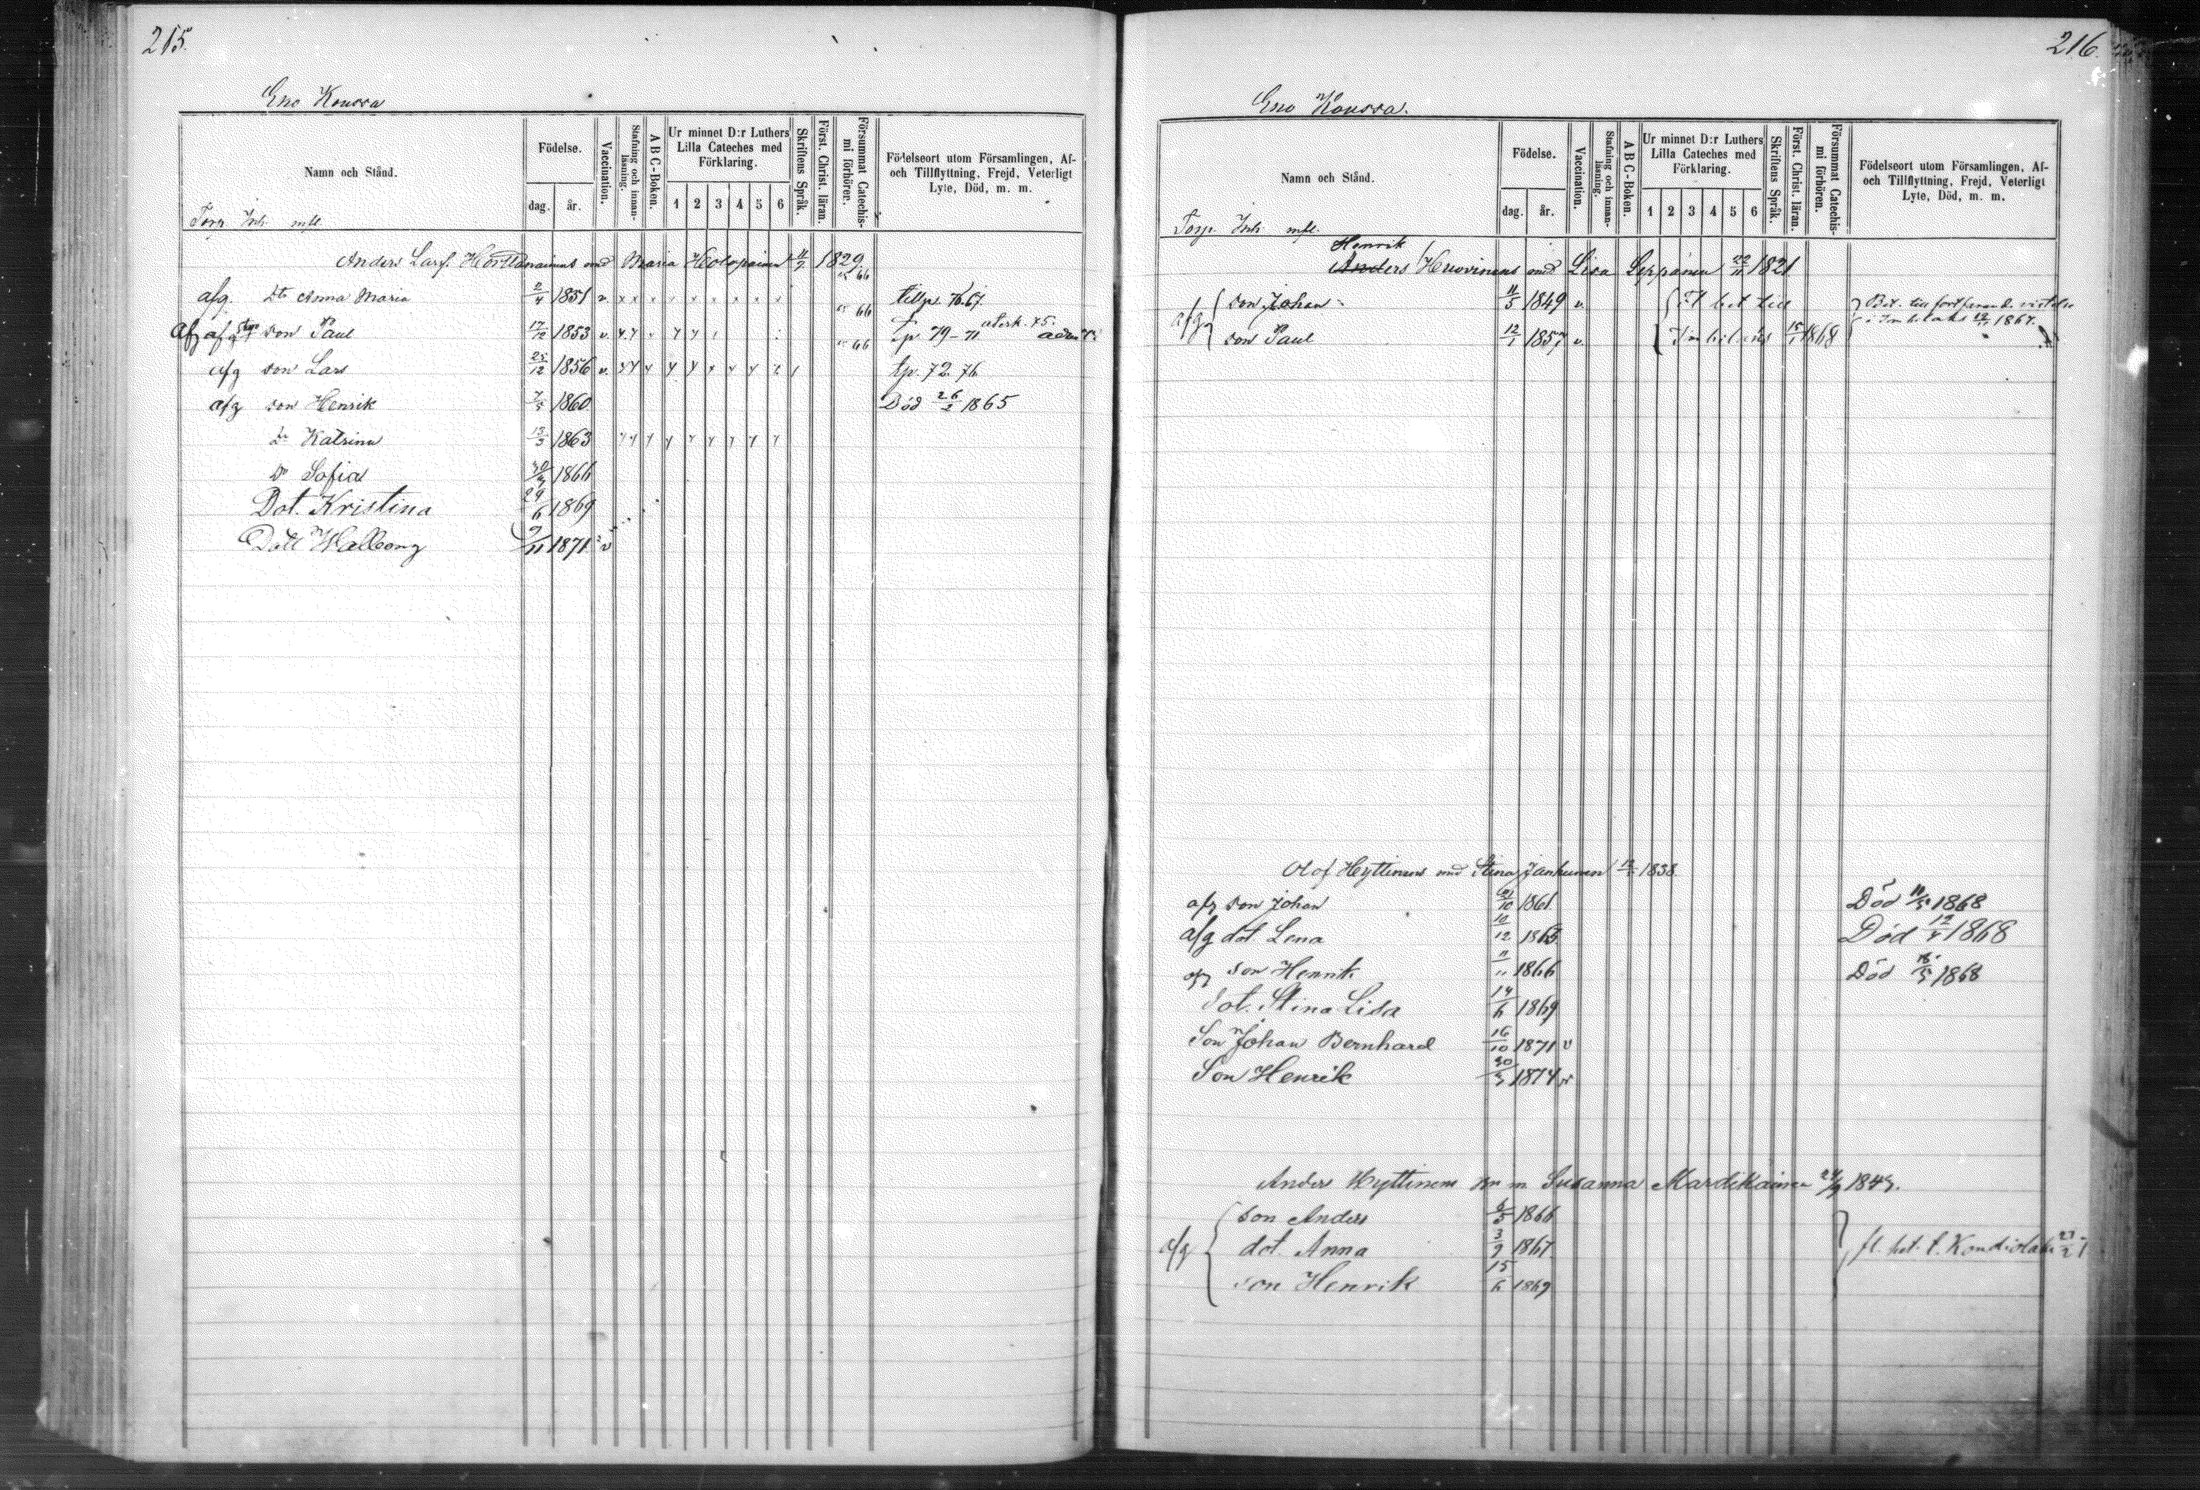 215.
Eno Kousva
Namn och Stånd.
Födelse.
dag. år.
Vaccination.
Stafning och innanläsning.
A B C-Boken.
Ur minnet D:r Luthers Lilla Cateches med Förklaring.
1 2 3 4 5 6
Skriftens Språk.
Först. Christ. läran.
Försummat Catechismi förhören.
Födelseort utom Församlingen, Af- och Tillflyttning, Frejd, Veterligt Lyte, Död, m. m.
Torp. Inh. mfl.
Anders Larss. med Maria Holopainen 11/9 1829
afg. Dtr Anna Maria 2/4 1851 v. 66 tillp. 76.67.
afg son Paul 17/12 1853 v. 66 tp 79-71
afg son Lars 25/12 1856 v. 66 tp. 72. 76
afg son Henrik 7/5 1860 Död 26/2 1865
Dr Katrina 13/3 1863
Dr Sofia 1866
Dot. Kristina 29/6 1869
Dott Walborg 9/11 1871 v
216.
Eno Kousva.
Namn och Stånd.
Födelse.
dag. år.
Vaccination.
Stafning och innanläsning.
A B C-Boken.
Ur minnet D:r Luthers Lilla Cateches med Förklaring.
1 2 3 4 5 6
Skriftens Språk.
Först. Christ. läran.
Försummat Catechismi förhören.
Födelseort utom Församlingen, Af- och Tillflyttning, Frejd, Veterligt Lyte, Död, m. m.
Torp. Inh. mfl.
Henrik
Anders Huovinens med Lisa Seppänen 22/11 1821
afg son Johan 11/5 1849 v. fl bet till Bet. till fortfarand. vistelse
son Paul 12/1 1857 v. Imbilaks 15/1 1868 i Imbilaks 1867.
Olof Hyttinens med Stina Janhunen 1838.
afg son Johan 1861 Död 1868
afg dot Lena 10/12 1863 Död 1868
afg son Henrik 11/11 1866 Död 1868
Dot. Stina Lisa 14/6 1869
Son Johan Bernhard 16/10 1871 v
Son Henrik 1874 v
Anders Hyttinens son m Susanna Mardikainen 24/9 1843.
son Anders 6/5 1866
afg dot. Anna 3/9 1867 fl. bet. t. Kondiolaks
son Henrik 15/6 1869